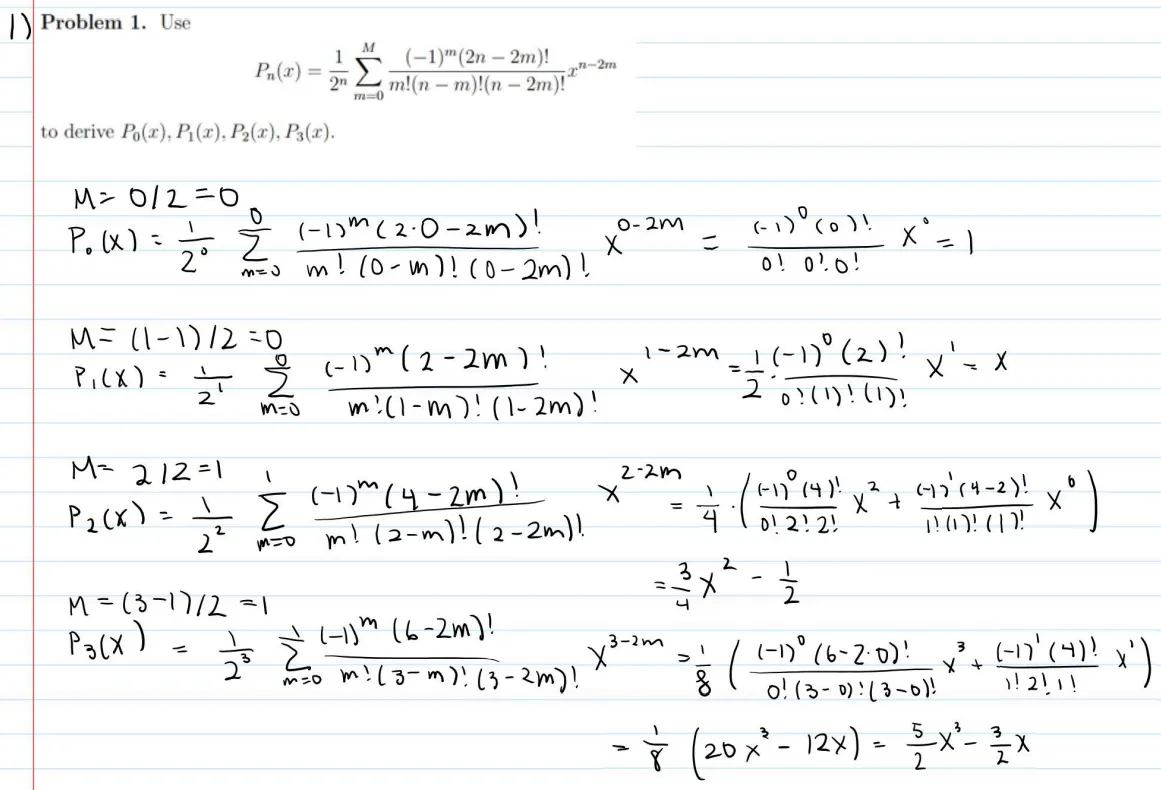 1) Problem 1. Use
P_n(x) = \frac{1}{2^n} \sum_{m=0}^{M} \frac{(-1)^m (2n - 2m)!}{m!(n - m)!(n - 2m)!} x^{n-2m}
to derive P_0(x), P_1(x), P_2(x), P_3(x).
M = 0/2 = 0
P_0(x) = \frac{1}{2^0} \sum_{m=0}^{0} \frac{(-1)^m (2·0-2m)!}{m! (0-m)! (0-2m)!} x^{0-2m} = \frac{(-1)^0 (0)!}{0! 0! 0!} x^0 = 1
M = (1-1)/2 = 0
P_1(x) = \frac{1}{2^1} \sum_{m=0}^{0} \frac{(-1)^m (2-2m)!}{m!(1-m)! (1-2m)!} x^{1-2m} = \frac{1}{2} · \frac{(-1)^0 (2)!}{0! (1)! (1)!} x^1 = x
M = 2/2 = 1
P_2(x) = \frac{1}{2^2} \sum_{m=0}^{1} \frac{(-1)^m (4-2m)!}{m! (2-m)! (2-2m)!} x^{2-2m} = \frac{1}{4} · ( \frac{(-1)^0 (4)!}{0! 2! 2!} x^2 + \frac{(-1)^1 (4-2)!}{1! (1)! (1)!} x^0 )
= \frac{3}{4} x^2 - \frac{1}{2}
M = (3-1)/2 = 1
P_3(x) = \frac{1}{2^3} \sum_{m=0}^{1} \frac{(-1)^m (6-2m)!}{m! (3-m)! (3-2m)!} x^{3-2m} = \frac{1}{8} ( \frac{(-1)^0 (6-2·0)!}{0! (3-0)! (3-0)!} x^3 + \frac{(-1)^1 (4)!}{1! 2! 1!} x^1 )
= \frac{1}{8} (20x^3 - 12x) = \frac{5}{2} x^3 - \frac{3}{2} x